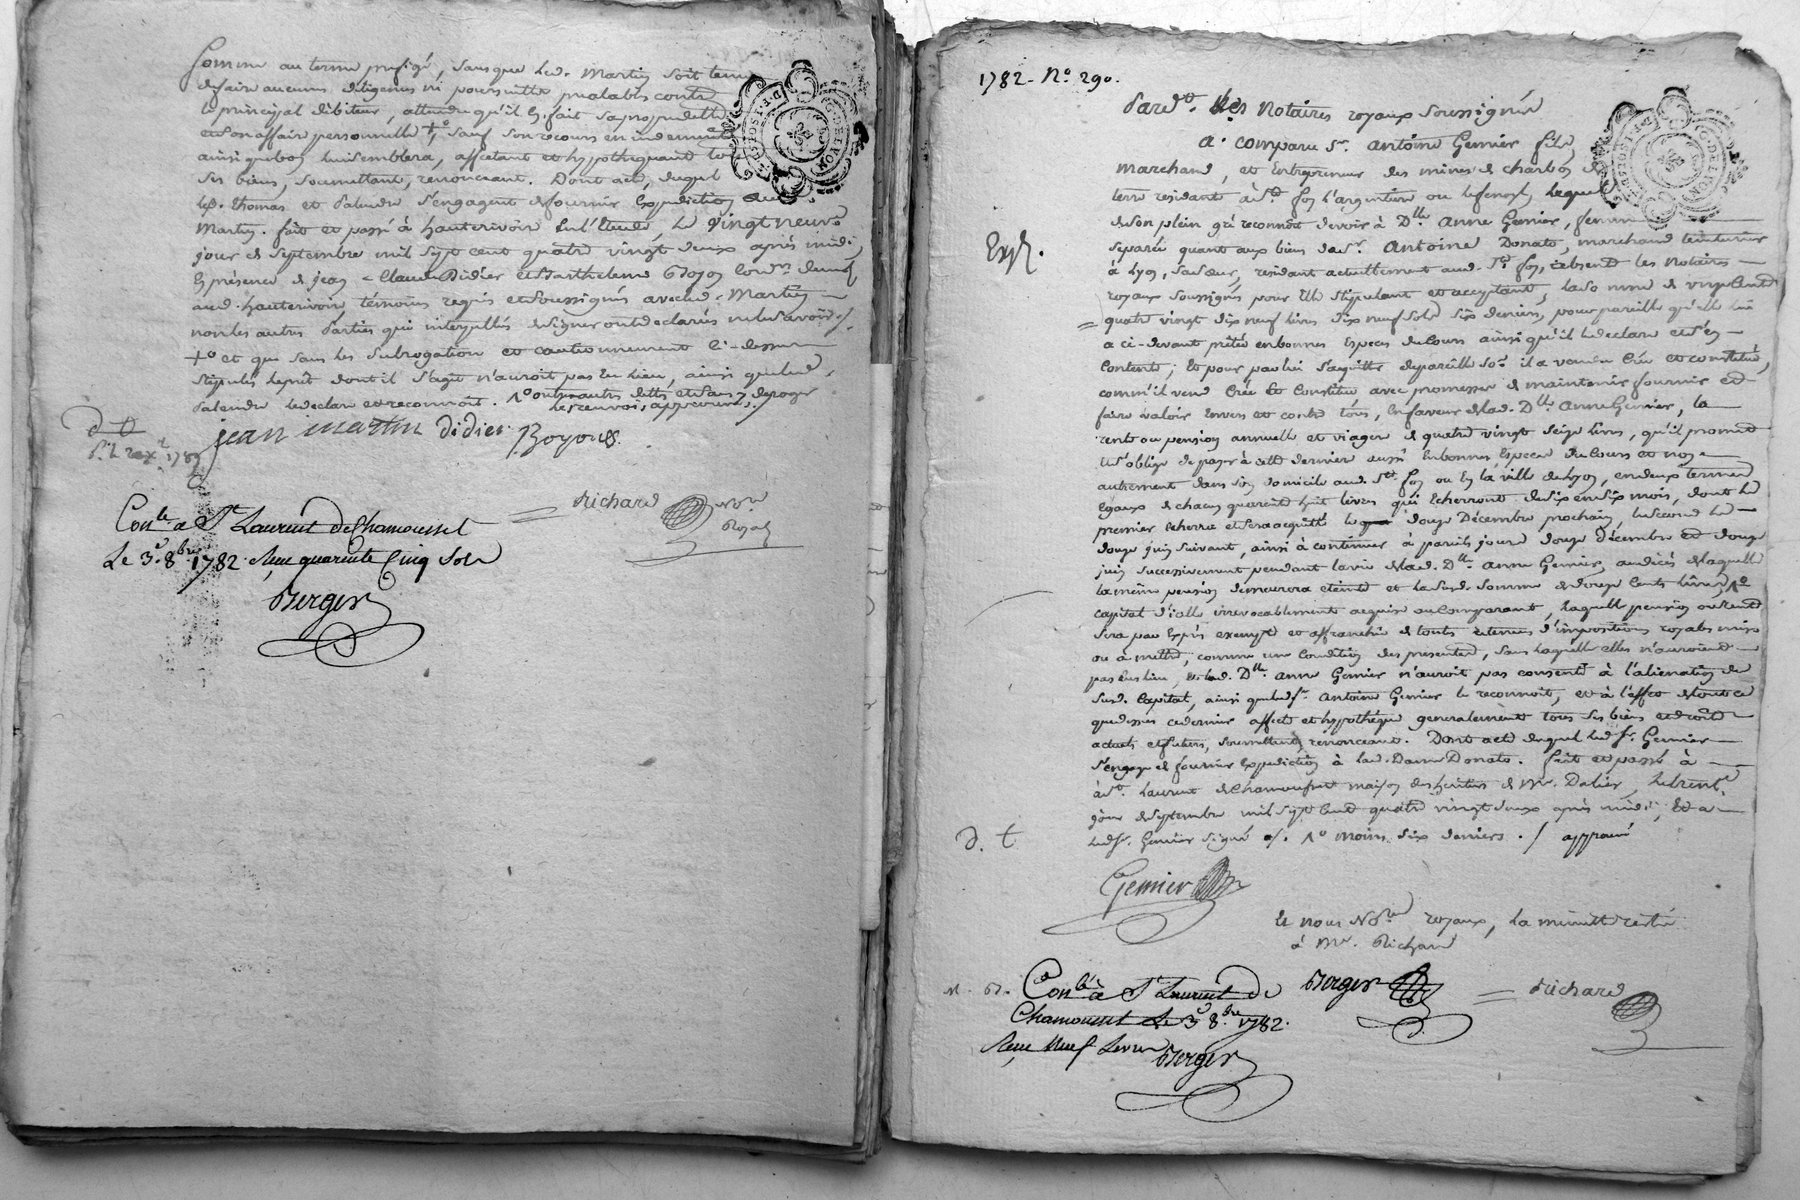 Somme au terme prefigé, sans que led. Martin soit tenu
de faire aucunes diligences ni poursuittes prealables contre
le principal débiteur, attendu qu'il en fait sa propre dette
et son affaire personnelle +° sauf son recours en indemnité
ainsi que bon lui semblera, affectant et hypothequant tous
ses biens, soumettant, renonceant. Dont acte, duquel
led. thomas et s'engagent de fournir expedition aud.
Martin. fait et passé à hauterivoire en l'Etude, le vingt neuf
jour de Septembre mil sept cent quatre vingt deux après midi,
En présence de jean-Claude Didier et Barthelemi Boyon
aud. hauterivoire, témoins requis et soussignés avec led. Martin
non les autres Parties qui interpellés de signer ont declarés ne le savoir ./.
+° et que sans les subrogation et cautionnement ci-dessus
stipulés le prêt dont il s'agit n'auroit pas eu lieu, ainsi que led.
le declare et reconnoit.
les renvois approuvés ./.
jean martin didier Boyon
Richard No.re
Royal
Con.lé a St. Laurent de Chamousset
Le 3.e 8.bre 1782. Reçu quarente Cinq Sols
Berger
DE LYON
1782 - N.° 290.
Pardt. Les Notaires royaux soussignés
a comparu Sr. Antoine Gernier fils,
Marchand, et Entrepreneur des mines de charbon de
terre résidant à Ste. foy l'argentiere lequel
de son plein gré reconnoit devoir à Dlle. Anne Gernier, femme
séparée quant aux biens de Sr. Antoine Donato, marchand teinturier
à Lyon, sa sœur, résidant actuellement aud. Ste. foy, absente les Notaires
royaux soussignés pour Elle stipulant et acceptant, la somme de
quatre vingt dix neuf livres dix neuf sols six deniers, pour pareille qu'elle lui
a ci-devant prêtée en bonnes Especes du Cours ainsi qu'il le declare et s'en
contente; Et pour par lui s'aquitter de pareille so.e il a vendu créé et constitué,
comm'il vend Crée Et Constitue avec promesse de maintenir fournir et
faire valoir Envers et contre tous, En faveur de lad. Dlle. Anne Gernier, la
rente ou pension annuelle et viagere de quatre vingt seize livres, qu'il promet
Et s'oblige de payer à cette derniere aussi En bonnes Especes du Cours et non
autrement dans son domicile aud. Ste. foy ou En la ville de Lyon, en deux termes
Egaux de chacun quarente huit livres qui Echerront de six en six mois, dont le
premier Echerra et sera acquitté le douze Décembre prochain, le second le
douze juin suivant, ainsi à continuer à pareils jours douze décembre et douze
juin successivement pendant la vie de lad. Dlle. Anne Gernier, au décès de laquelle
la même pension demeurera eteinte et la susd. somme de douze Cents livres +°
capital d'icelle irrevocablement acquise au Comparant, laquelle pension ou rente
sera par Exprès exempte et affranchie de toutes retenues d'impositions royales mises
ou à mettre, comme une Condition des presentes, sans laquelle elles n'auroient
pas Eu lieu, et lad. Dlle. Anne Gernier n'auroit pas consenti à l'alienation du
susd. Capital, ainsi que led. Sr. Antoine Gernier le reconnoit, et à l'effet de tout ce
que dessus ce dernier affecte et hypothéque generalement tous ses biens et droits
actuels et futurs, soumettant, renonceant. Dont acte duquel led. Sr. Gernier
s'engage de fournir Expedition à lad. Dame Donato. fait et passé à
à St. Laurent de Chamousset maison des heritiers de Mr. Dalier, le trente
jour de Septembre mil sept cent quatre vingt deux après midi; Et a
led. Sr. Gernier signé ./. +° moins six deniers ./ approuvé
Exp.
D. t
Gernier
Et nous No.res royaux, la minutte restée
à Me. Richard
Con.lé à St. Laurent de
Chamousset Le 3.e 8.bre 1782.
Reçu Neuf Livres Berger
Berger Richard
DE LYON